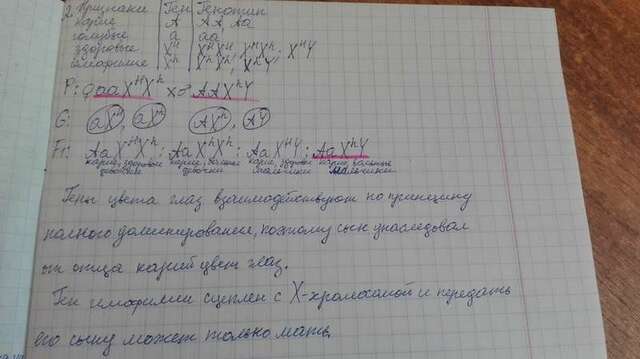 2. Признаки | Ген | Генотип
карие | А | АА, Аа
голубые | а | аа
здоровые | Xᴴ | XᴴXᴴ, XᴴXʰ, XᴴY
гемофилия | Xʰ | XʰXʰ, XʰY
P: ♀ aaXᴴXʰ x ♂ AAXʰY
G: aXᴴ, aXʰ AXʰ, AY
F₁: AaXᴴXʰ; AaXʰXʰ; AaXᴴY; AaXʰY
карие, здоровые карие, больные карие, здоровые карие, больные
девочки девочки мальчики мальчики
Гены цвета глаз взаимодействуют по принципу
полного доминирования, поэтому сын унаследовал
от отца карий цвет глаз.
Ген гемофилии сцеплен с X-хромосомой и передать
его сыну может только мать.